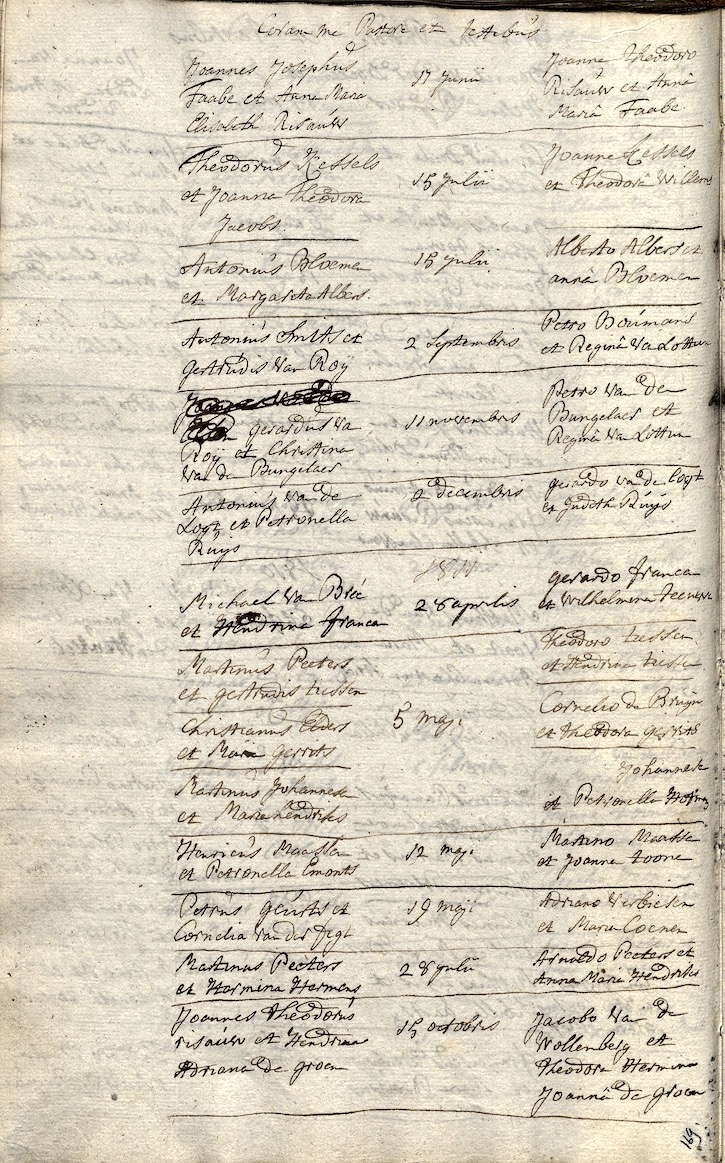 Coram me Pastore et testibus
Joannes Josephus
Faabe et Anna Maria
Elisabeth Risauw
17 Junii
Joanne Theodoro
Risauw et Annâ
Mariâ Faabe
Theodorus Kessels
et Joanna Theodora
Jacobs.
15 Julii
Joanne Kessels
et Theodorâ Willems
Antonius Bloemen
et Margareta Albers.
15 Julii
Alberto Albers et
annâ Bloemen
Antonius Smits et
gertrudis Van Roÿ
2 Septembris
Petro Boumans
et Reginâ Va Lottum
gerardus Va
Roÿ et Christina
Van de Bungelaer
11 novembris
Petro Van de
Bungelaer et
Reginâ Va Lottum
Antonius Va de
Logt et Petronella
Ruijs
2 decembris
gerardo va de Logt
et Judith Ruÿs
1811
Michael Va Bree
et Hendrina francen
28 aprilis
gerardo francen
et Wilhelmina
Martinus Peeters
et gertrudis tiessen
Theodoro tiessen
et Hendrina tiessen
Christianus Elders
et Maria Gerrits
5 maji
Cornelio de Bruijn
et Theodora gerrits
Martinus Johannese
et Maria hendriks
Johannese
et Petronella
Henricus Maassen
et Petronella Emonts
12 maji
Martino Maasse
et Joanna toone
Petrus geurts et
Cornelia Van der Vegt
19 maji
Adriano Verbiesen
et Maria Coenen
Martinus Peeters
et Harmina Hermens
28 Julii
Arnoldo Peeters et
Anna Maria Hendriks
Joannes Theodorus
risauw et Hendrina
Adriana de groen
15 octobris
Jacobo Van de
Wollenberg et
Theodora Hermina
Joannâ de groen
169